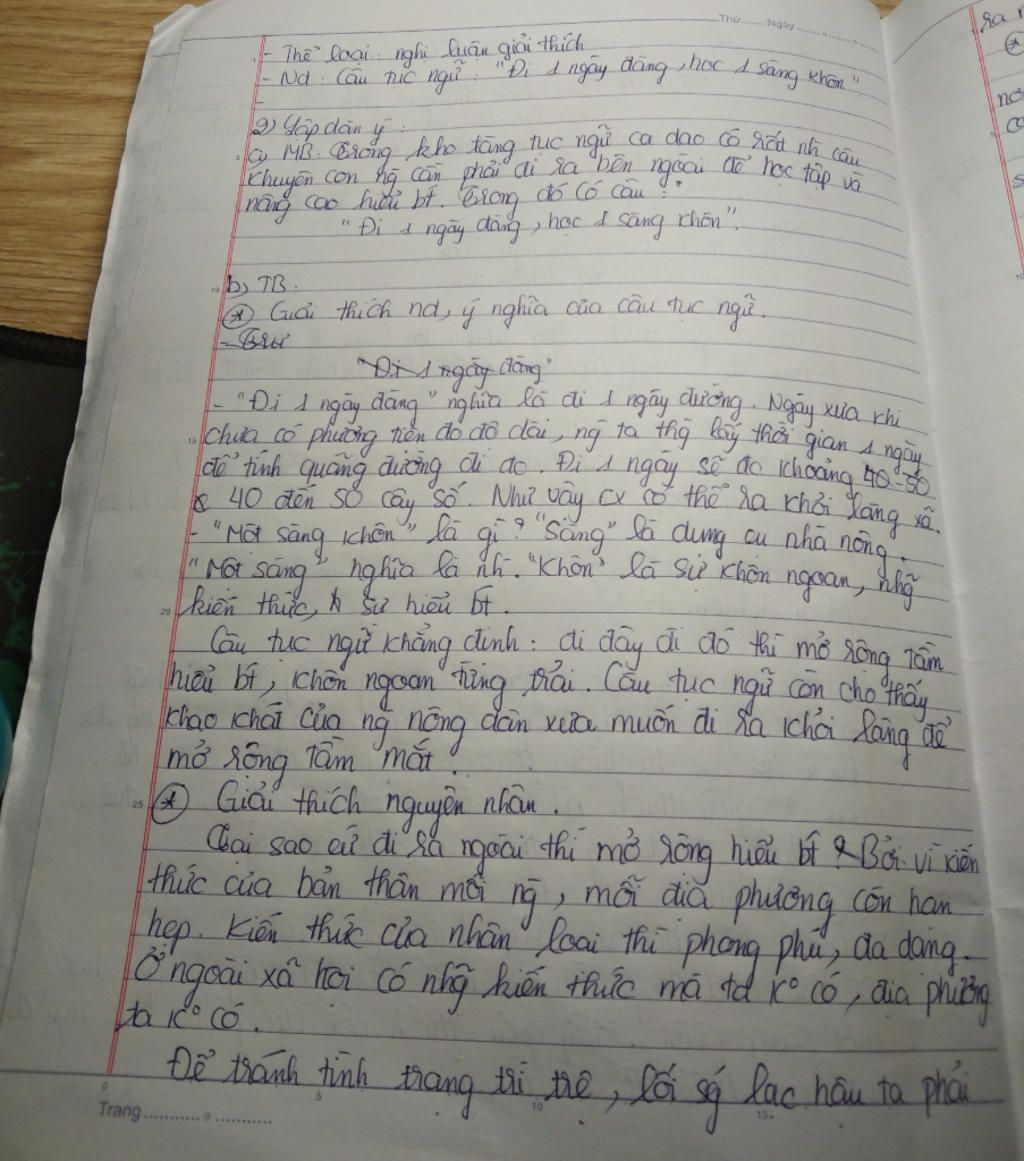 Thứ....... Ngày.......
- Thể loại: nghị luận giải thích
- Nd: Câu tục ngữ: "Đi 1 ngày đàng, học 1 sàng khôn"
-
2) Lập dàn ý:
a) MB. Trong kho tàng tục ngữ ca dao có rất nh câu
khuyên con ng cần phải đi ra bên ngoài để học tập và
nâng cao hiểu bt. Trong đó có câu:
"Đi 1 ngày đàng, học 1 sàng khôn".
10 b) TB.
* Giải thích nd, ý nghĩa của câu tục ngữ.
"Đi 1 ngày đàng"
- "Đi 1 ngày đàng" nghĩa là đi 1 ngày đường. Ngày xưa khi
15 chưa có phương tiện đo độ dài, ng ta thg lấy thời gian 1 ngày
để tính quãng đường đi đc. Đi 1 ngày sẽ đc khoảng 40-50
40 đến 50 cây số. Như vậy cx có thể ra khỏi làng xã.
- "Một sàng khôn" là gì? "Sàng" là dụng cụ nhà nông.
"Một sàng" nghĩa là nh. "Khôn" là sự khôn ngoan, nhg
20 kiến thức, sự hiểu bt.
Câu tục ngữ khẳng định: đi đây đi đó thì mở rộng tầm
hiểu bt, khôn ngoan từng trải. Câu tục ngữ còn cho thấy
khao khát của ng nông dân xưa muốn đi ra khỏi làng để
mở rộng tầm mắt.
25 * Giải thích nguyên nhân.
Tại sao cứ đi ra ngoài thì mở rộng hiểu bt? Bởi vì kiến
thức của bản thân mỗi ng, mỗi địa phương còn hạn
hẹp. Kiến thức của nhân loại thì phong phú, đa dạng.
Ở ngoài xã hội có nhg kiến thức mà ta k° có, địa phương
ta k° có.
Để tránh tình trạng trì trệ, lối sg lạc hậu ta phải
0 5 10 15
Trang...........
ra
*